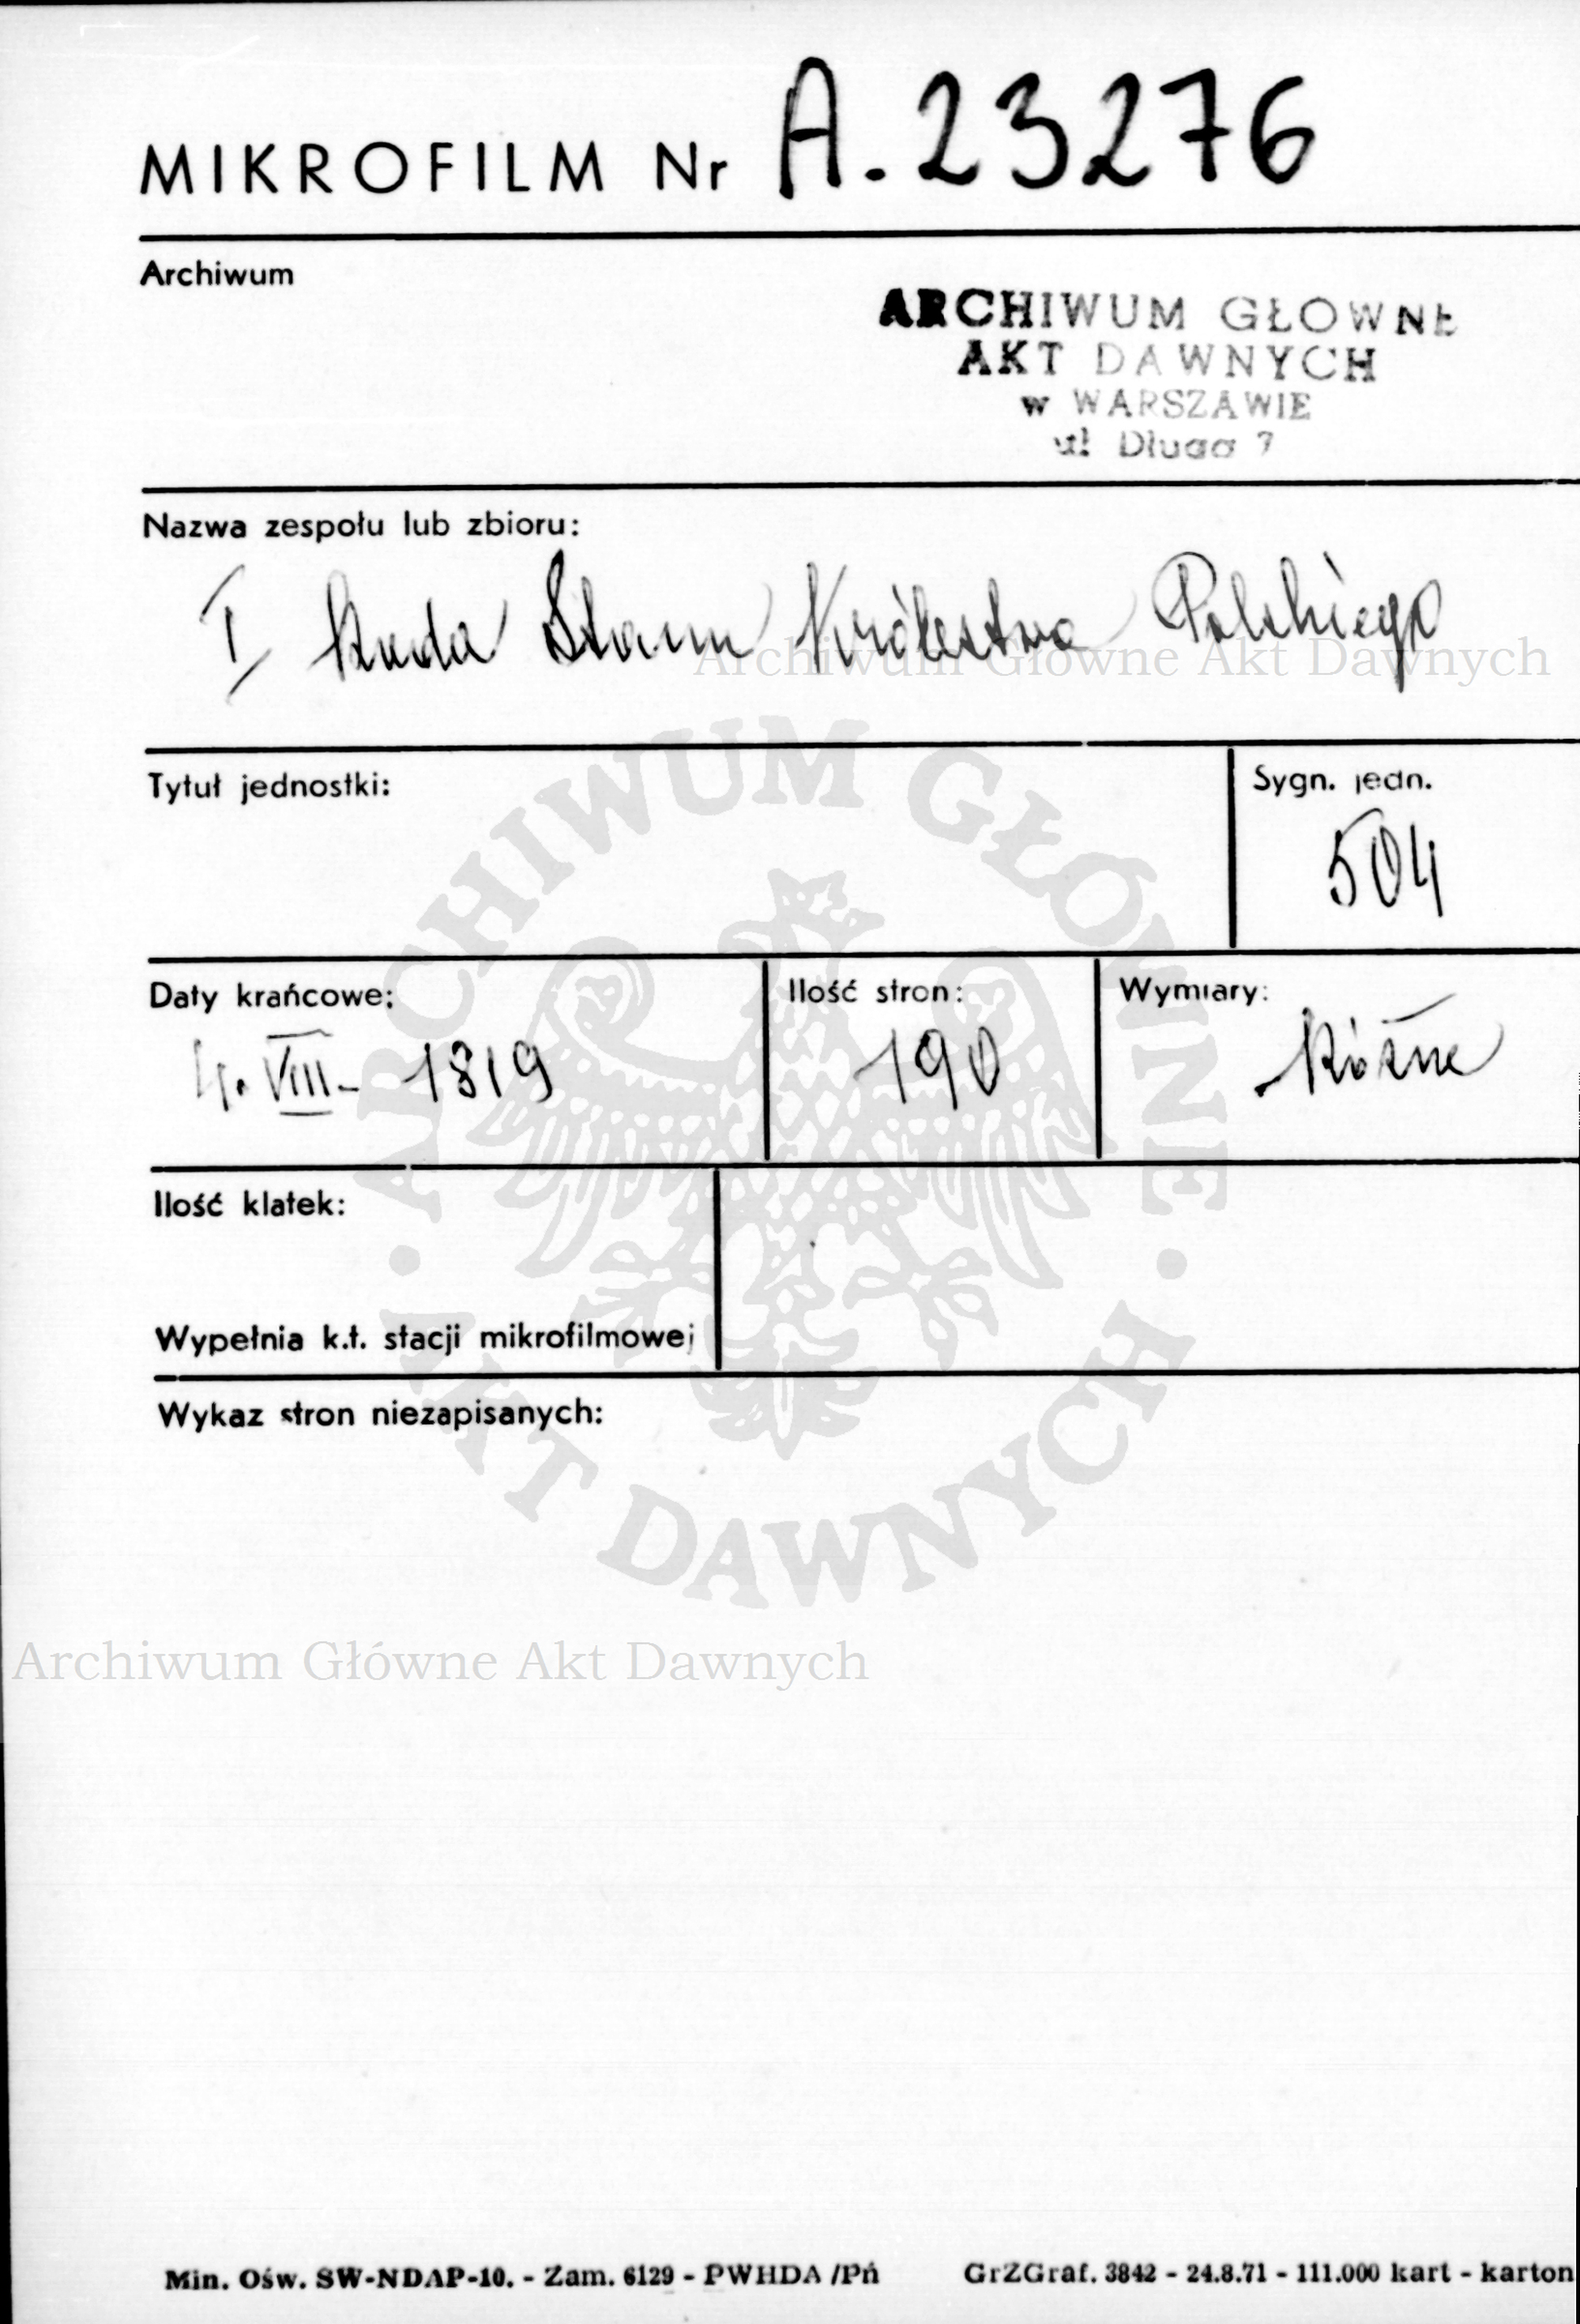 MIKROFILM Nr A. 23276
Archiwum
ARCHIWUM GŁOWNE
AKT DAWNYCH
w WARSZAWIE
ul Długa 7
Nazwa zespołu lub zbioru:
I Rada Stanu Królestwa Polskiego
Archiwum Główne Akt Dawnych
Tytuł jednostki:
Sygn. jedn.
504
Daty krańcowe:
Ilość stron:
Wymiary:
4. VIII - 1819
190
Różne
Ilość klatek:
Wypełnia k.t. stacji mikrofilmowej
Wykaz stron niezapisanych:
ARCHIWUM GŁÓWNE
AKT DAWNYCH
Archiwum Główne Akt Dawnych
Min. Ośw. SW-NDAP-10. - Zam. 6129 - PWHDA /Pń GrZGraf. 3842 - 24.8.71 - 111.000 kart - karton